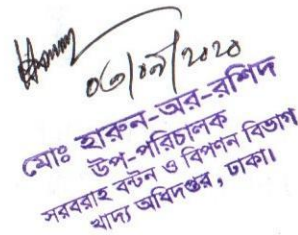 ০৩/০৯/২০২০
মোঃ হারুন-অর-রশিদ
উপ-পরিচালক
সরবরাহ বন্টন ও বিপণন বিভাগ
খাদ্য অধিদপ্তর, ঢাকা।